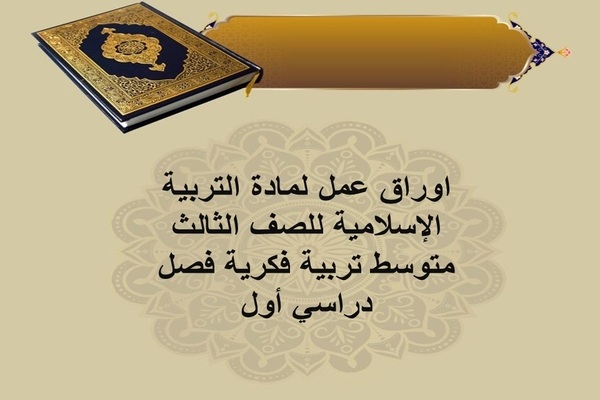 اوراق عمل لمادة التربية
الإسلامية للصف الثالث
متوسط تربية فكرية فصل
دراسي أول